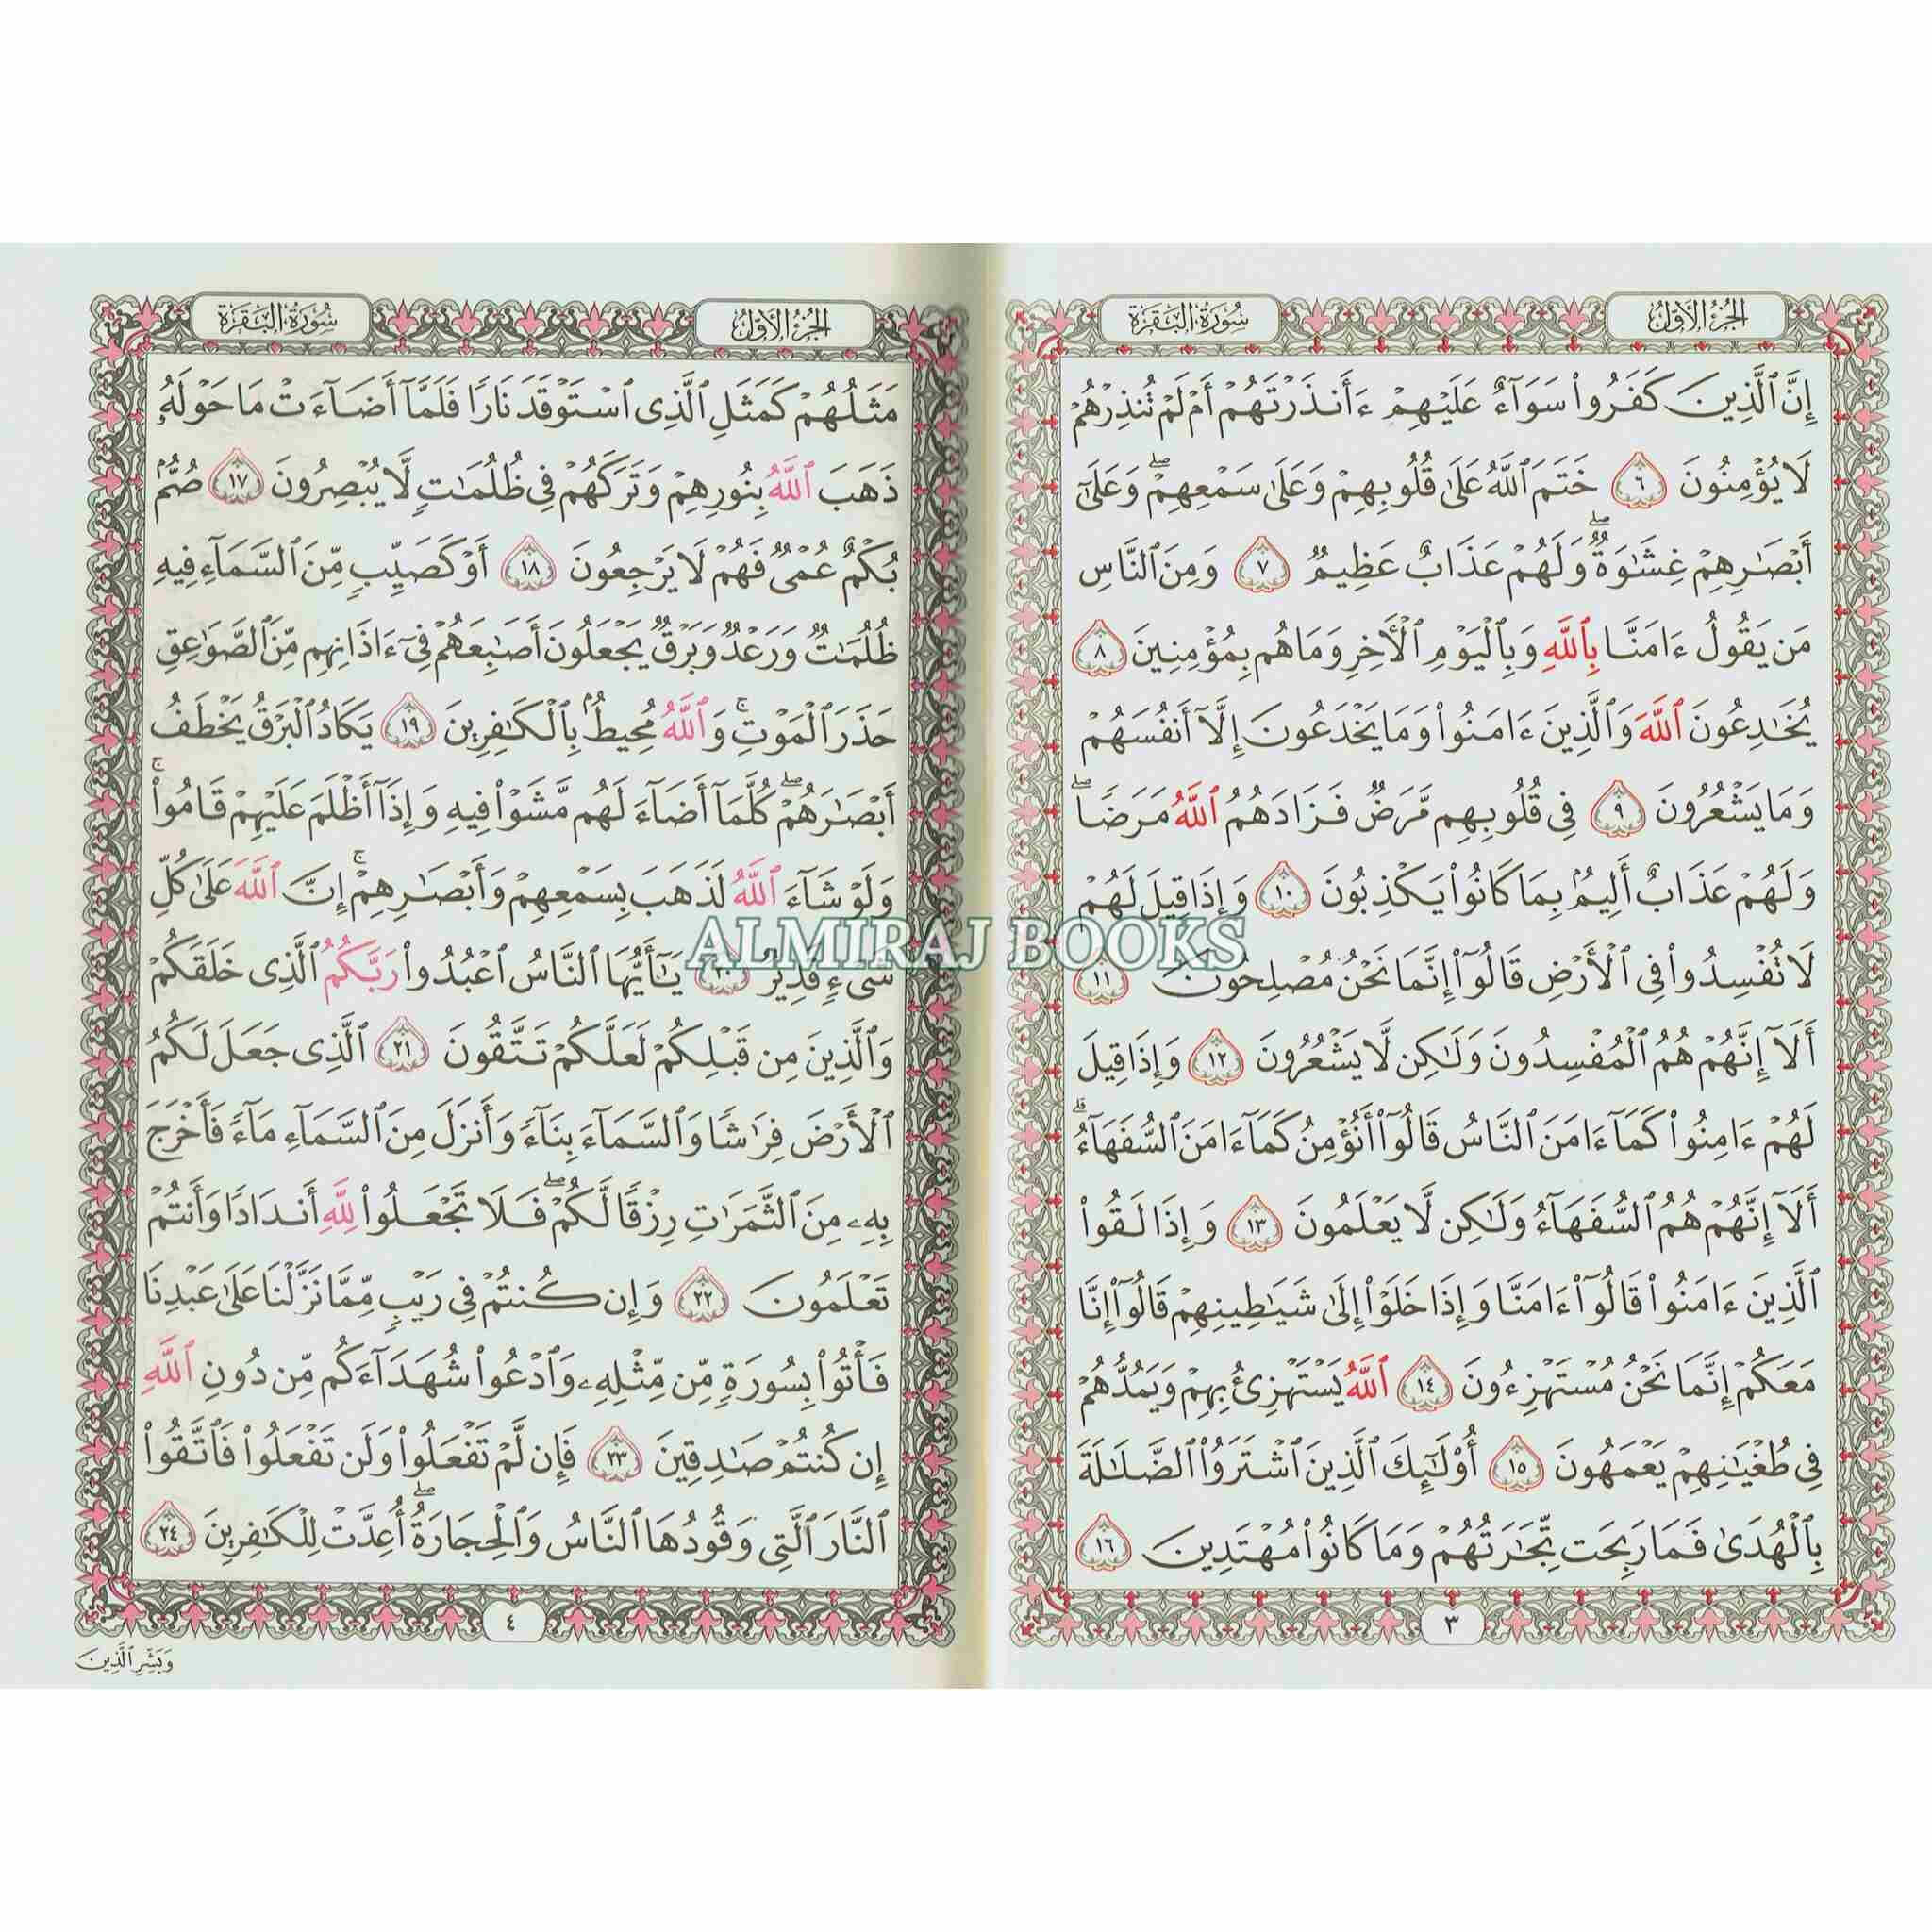 الجزء الأول
سورة البقرة
إِنَّ ٱلَّذِينَ كَفَرُوا۟ سَوَآءٌ عَلَيْهِمْ ءَأَنذَرْتَهُمْ أَمْ لَمْ تُنذِرْهُمْ
لَا يُؤْمِنُونَ ٦ خَتَمَ ٱللَّهُ عَلَىٰ قُلُوبِهِمْ وَعَلَىٰ سَمْعِهِمْ ۖ وَعَلَىٰٓ
أَبْصَٰرِهِمْ غِشَٰوَةٌ ۖ وَلَهُمْ عَذَابٌ عَظِيمٌ ٧ وَمِنَ ٱلنَّاسِ
مَن يَقُولُ ءَامَنَّا بِٱللَّهِ وَبِٱلْيَوْمِ ٱلْءَاخِرِ وَمَا هُم بِمُؤْمِنِينَ ٨
يُخَٰدِعُونَ ٱللَّهَ وَٱلَّذِينَ ءَامَنُوا۟ وَمَا يَخْدَعُونَ إِلَّآ أَنفُسَهُمْ
وَمَا يَشْعُرُونَ ٩ فِى قُلُوبِهِم مَّرَضٌ فَزَادَهُمُ ٱللَّهُ مَرَضًا ۖ
وَلَهُمْ عَذَابٌ أَلِيمٌۢ بِمَا كَانُوا۟ يَكْذِبُونَ ١٠ وَإِذَا قِيلَ لَهُمْ
لَا تُفْسِدُوا۟ فِى ٱلْأَرْضِ قَالُوٓا۟ إِنَّمَا نَحْنُ مُصْلِحُونَ ١١
أَلَآ إِنَّهُمْ هُمُ ٱلْمُفْسِدُونَ وَلَٰكِن لَّا يَشْعُرُونَ ١٢ وَإِذَا قِيلَ
لَهُمْ ءَامِنُوا۟ كَمَآ ءَامَنَ ٱلنَّاسُ قَالُوٓا۟ أَنُؤْمِنُ كَمَآ ءَامَنَ ٱلسُّفَهَآءُ ۗ
أَلَآ إِنَّهُمْ هُمُ ٱلسُّفَهَآءُ وَلَٰكِن لَّا يَعْلَمُونَ ١٣ وَإِذَا لَقُوا۟
ٱلَّذِينَ ءَامَنُوا۟ قَالُوٓا۟ ءَامَنَّا وَإِذَا خَلَوْا۟ إِلَىٰ شَيَٰطِينِهِمْ قَالُوٓا۟ إِنَّا
مَعَكُمْ إِنَّمَا نَحْنُ مُسْتَهْزِءُونَ ١٤ ٱللَّهُ يَسْتَهْزِئُ بِهِمْ وَيَمُدُّهُمْ
فِى طُغْيَٰنِهِمْ يَعْمَهُونَ ١٥ أُو۟لَٰٓئِكَ ٱلَّذِينَ ٱشْتَرَوُا۟ ٱلضَّلَٰلَةَ
بِٱلْهُدَىٰ فَمَا رَبِحَت تِّجَٰرَتُهُمْ وَمَا كَانُوا۟ مُهْتَدِينَ ١٦
٣
الجزء الأول
سورة البقرة
مَثَلُهُمْ كَمَثَلِ ٱلَّذِى ٱسْتَوْقَدَ نَارًا فَلَمَّآ أَضَآءَتْ مَا حَوْلَهُۥ
ذَهَبَ ٱللَّهُ بِنُورِهِمْ وَتَرَكَهُمْ فِى ظُلُمَٰتٍ لَّا يُبْصِرُونَ ١٧ صُمٌّۢ
بُكْمٌ عُمْىٌ فَهُمْ لَا يَرْجِعُونَ ١٨ أَوْ كَصَيِّبٍ مِّنَ ٱلسَّمَآءِ فِيهِ
ظُلُمَٰتٌ وَرَعْدٌ وَبَرْقٌ يَجْعَلُونَ أَصَٰبِعَهُمْ فِىٓ ءَاذَانِهِم مِّنَ ٱلصَّوَٰعِقِ
حَذَرَ ٱلْمَوْتِ ۚ وَٱللَّهُ مُحِيطٌۢ بِٱلْكَٰفِرِينَ ١٩ يَكَادُ ٱلْبَرْقُ يَخْطَفُ
أَبْصَٰرَهُمْ ۖ كُلَّمَآ أَضَآءَ لَهُم مَّشَوْا۟ فِيهِ وَإِذَآ أَظْلَمَ عَلَيْهِمْ قَامُوا۟ ۚ
وَلَوْ شَآءَ ٱللَّهُ لَذَهَبَ بِسَمْعِهِمْ وَأَبْصَٰرِهِمْ ۚ إِنَّ ٱللَّهَ عَلَىٰ كُلِّ
شَىْءٍ قَدِيرٌ ٢٠ يَٰٓأَيُّهَا ٱلنَّاسُ ٱعْبُدُوا۟ رَبَّكُمُ ٱلَّذِى خَلَقَكُمْ
وَٱلَّذِينَ مِن قَبْلِكُمْ لَعَلَّكُمْ تَتَّقُونَ ٢١ ٱلَّذِى جَعَلَ لَكُمُ
ٱلْأَرْضَ فِرَٰشًا وَٱلسَّمَآءَ بِنَآءً وَأَنزَلَ مِنَ ٱلسَّمَآءِ مَآءً فَأَخْرَجَ
بِهِۦ مِنَ ٱلثَّمَرَٰتِ رِزْقًا لَّكُمْ ۖ فَلَا تَجْعَلُوا۟ لِلَّهِ أَندَادًا وَأَنتُمْ
تَعْلَمُونَ ٢٢ وَإِن كُنتُمْ فِى رَيْبٍ مِّمَّا نَزَّلْنَا عَلَىٰ عَبْدِنَا
فَأْتُوا۟ بِسُورَةٍ مِّن مِّثْلِهِۦ وَٱدْعُوا۟ شُهَدَآءَكُم مِّن دُونِ ٱللَّهِ
إِن كُنتُمْ صَٰدِقِينَ ٢٣ فَإِن لَّمْ تَفْعَلُوا۟ وَلَن تَفْعَلُوا۟ فَٱتَّقُوا۟
ٱلنَّارَ ٱلَّتِى وَقُودُهَا ٱلنَّاسُ وَٱلْحِجَارَةُ ۖ أُعِدَّتْ لِلْكَٰفِرِينَ ٢٤
٤
وَبَشِّرِ ٱلَّذِينَ
ALMIRAJ BOOKS